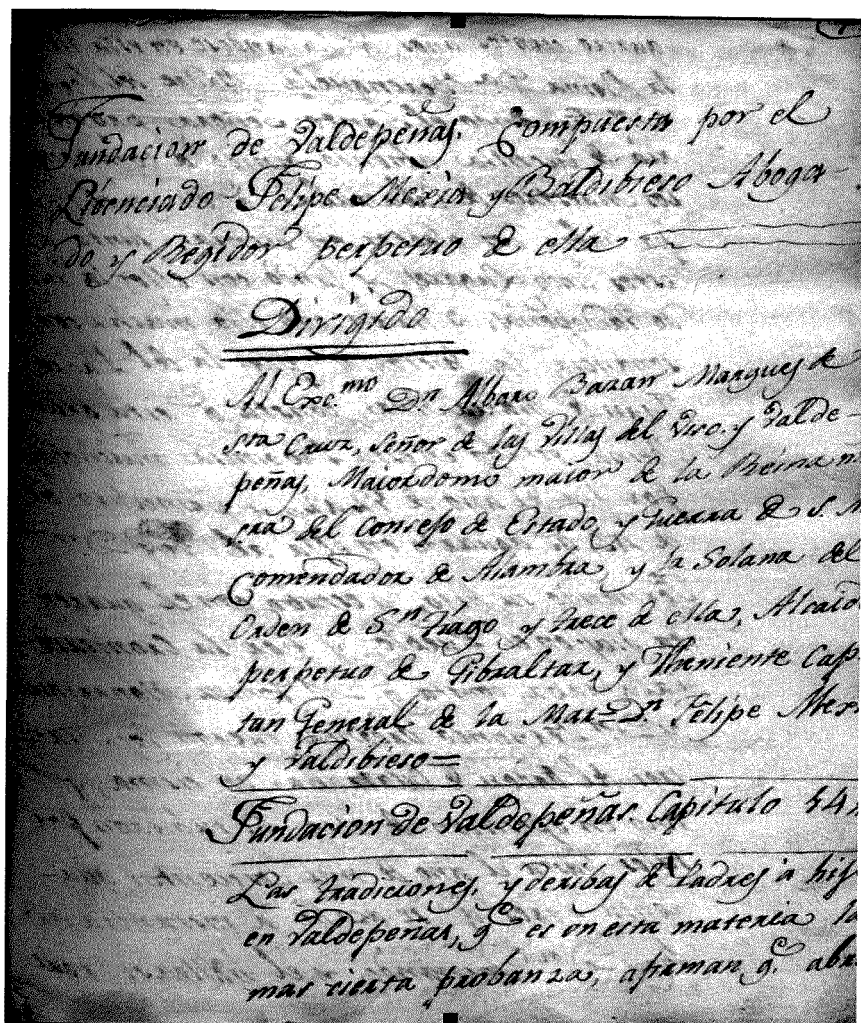 Fundacion de Valdepeñas. Compuesta por el
Lizenciado Felipe Mexia y Baldibieso Aboga-
do y Regidor perpetuo de ella
Dirigido
Al Exc.mo Dn Albaro Bazan Marques de
sta Cruz, señor de las Villas del Viso, y Valde-
peñas, Maiordomo maior de la Reina n
sra del Consejo de Estado, y Guerra de S. M
Comendador de Alambra, y la Solana del
Orden de Sn tiago y trece de ella, Alcaid
perpetuo de Gibraltar, y Theniente Capi
tan General de la Mar= Dn Felipe Mex
y Valdibieso=
Fundacion de Valdepeñas. Capitulo 54
Las tradiciones, y deribas de Padres à hij
en Valdepeñas, q.e es en esta materia la
mas cierta probanza, afirman q.e abr